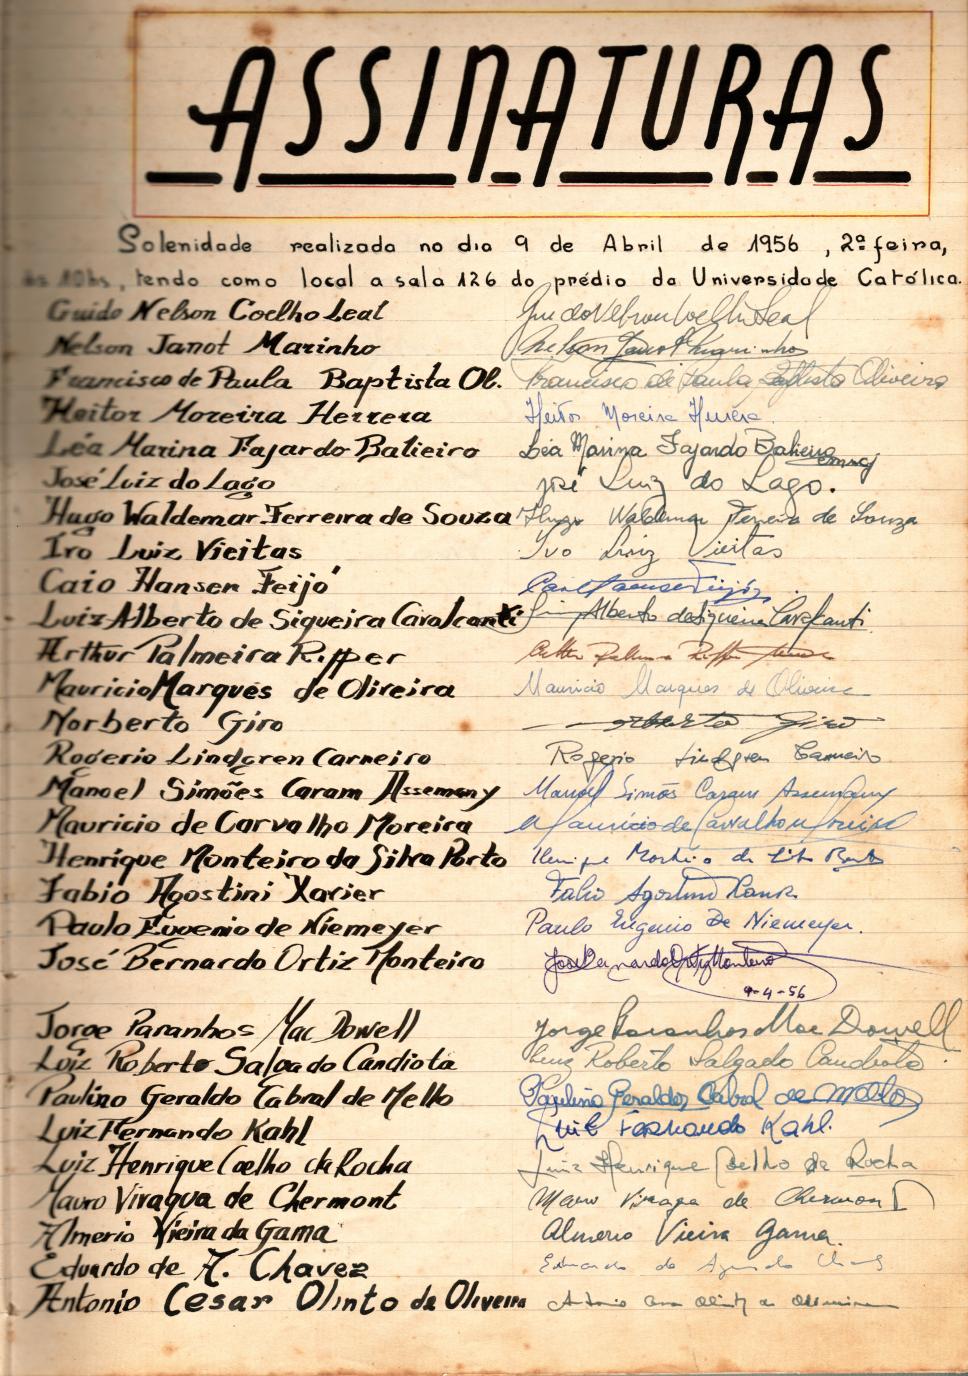 ASSINATURAS
Solenidade realizada no dia 9 de Abril de 1956, 2ª feira,
às 10hs, tendo como local a sala 126 do prédio da Universidade Católica.
Guido Nelson Coelho Leal Guido Nelson Coelho Leal
Nelson Janot Marinho Nelson Janot Marinho
Francisco de Paula Baptista Ol. Francisco de Paula Baptista Oliveira
Heitor Moreira Herrera Heitor Moreira Herrera
Léa Marina Fajardo Balieiro Léa Marina Fajardo Balieiro
José Luiz do Lago José Luiz do Lago.
Hugo Waldemar Ferreira de Souza Hugo Waldemar Ferreira de Souza
Ivo Luiz Vieitas Ivo Luiz Vieitas
Caio Hansen Feijó
Luiz Alberto de Siqueira Cavalcanti Luiz Alberto de Siqueira Cavalcanti
Arthur Palmeira Ripper
Mauricio Marques de Oliveira Mauricio Marques de Oliveira
Norberto Giro Norberto Giro
Rogerio Lindgren Carneiro Rogerio Lindgren Carneiro
Manoel Simões Caram Assemany Manoel Simões Caram Assemany
Mauricio de Carvalho Moreira Mauricio de Carvalho Moreira
Henrique Monteiro da Silva Porto Henrique Monteiro da Silva Porto
Fabio Agostini Xavier Fabio Agostini Xavier
Paulo Eugenio de Niemeyer Paulo Eugenio De Niemeyer.
José Bernardo Ortiz Monteiro José Bernardo Ortiz Monteiro
9-4-56
Jorge Paranhos Mac Dowell Jorge Paranhos Mac Dowell
Luiz Roberto Salgado Candiota Luiz Roberto Salgado Candiota.
Paulino Geraldo Cabral de Mello Paulino Geraldo Cabral de Mello
Luiz Fernando Kahl Luiz Fernando Kahl.
Luiz Henrique Coelho da Rocha Luiz Henrique Coelho da Rocha
Mauro Vivaqua de Chermont Mauro Vivaqua de Chermont
Almerio Vieira da Gama Almerio Vieira Gama.
Eduardo de A. Chavez Eduardo de
Antonio Cesar Olinto de Oliveira Antonio